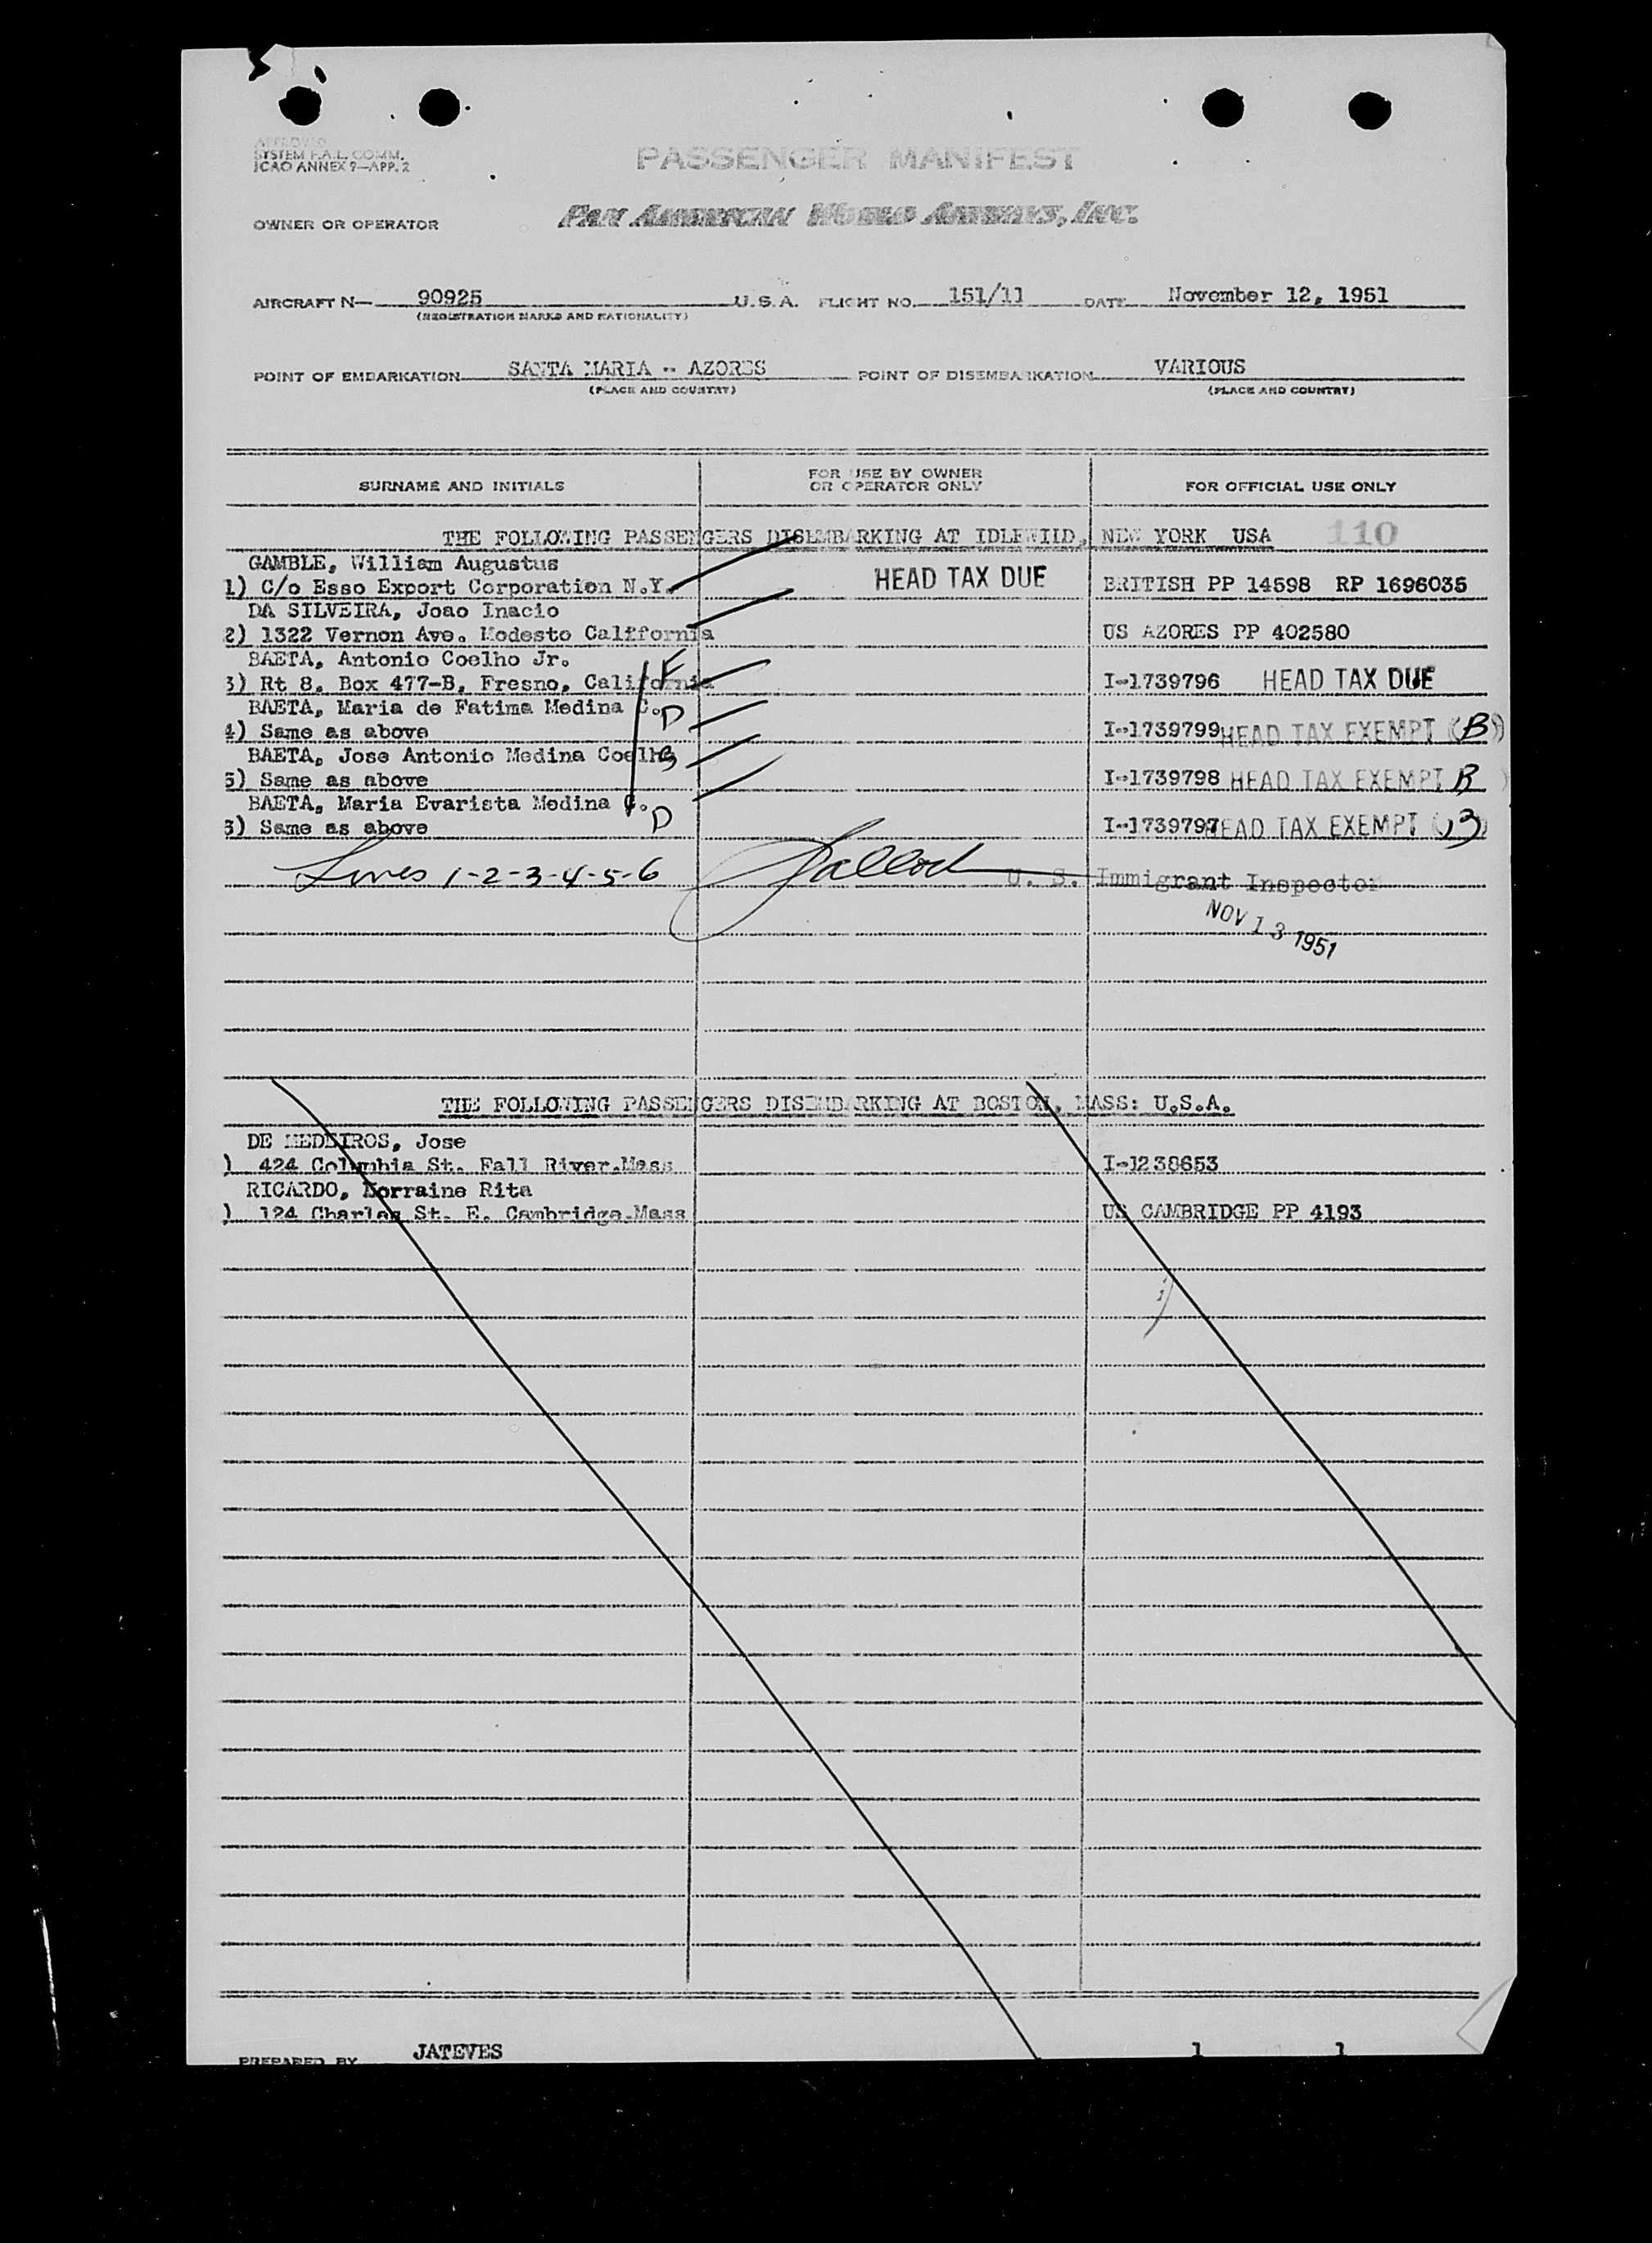 APPROVED
SYSTEM F.A.L. COMM.
ICAO ANNEX 9—APP. 2
PASSENGER MANIFEST
OWNER OR OPERATOR PAN AMERICAN WORLD AIRWAYS, INC.
AIRCRAFT N— 90925 U.S.A. FLIGHT NO. 151/11 DATE November 12, 1951
(REGISTRATION MARKS AND NATIONALITY)
POINT OF EMBARKATION SANTA MARIA -- AZORES POINT OF DISEMBARKATION VARIOUS
(PLACE AND COUNTRY) (PLACE AND COUNTRY)
SURNAME AND INITIALS FOR USE BY OWNER OR OPERATOR ONLY FOR OFFICIAL USE ONLY
THE FOLLOWING PASSENGERS DISEMBARKING AT IDLEWILD, NEW YORK USA 110
GAMBLE, William Augustus
1) C/o Esso Export Corporation N.Y. HEAD TAX DUE BRITISH PP 14598 RP 1696035
DA SILVEIRA, Joao Inacio
2) 1322 Vernon Ave. Modesto California US AZORES PP 402580
BAETA, Antonio Coelho Jr. F
3) Rt 8. Box 477-B, Fresno, California I-1739796 HEAD TAX DUE
BAETA, Maria de Fatima Medina C. D
4) Same as above I-1739799 HEAD TAX EXEMPT (B)
BAETA, Jose Antonio Medina Coelho
5) Same as above I-1739798 HEAD TAX EXEMPT B
BAETA, Maria Evarista Medina C. D
6) Same as above I-1739797 HEAD TAX EXEMPT (B)
Lines 1-2-3-4-5-6 U. S. Immigrant Inspector
NOV 13 1951
THE FOLLOWING PASSENGERS DISEMBARKING AT BOSTON, MASS: U.S.A.
DE MEDEIROS, Jose
) 424 Columbia St. Fall River.Mass I-1238653
RICARDO, Lorraine Rita
) 124 Charles St. E. Cambridge.Mass US CAMBRIDGE PP 4193
PREPARED BY JATEVES 1 1